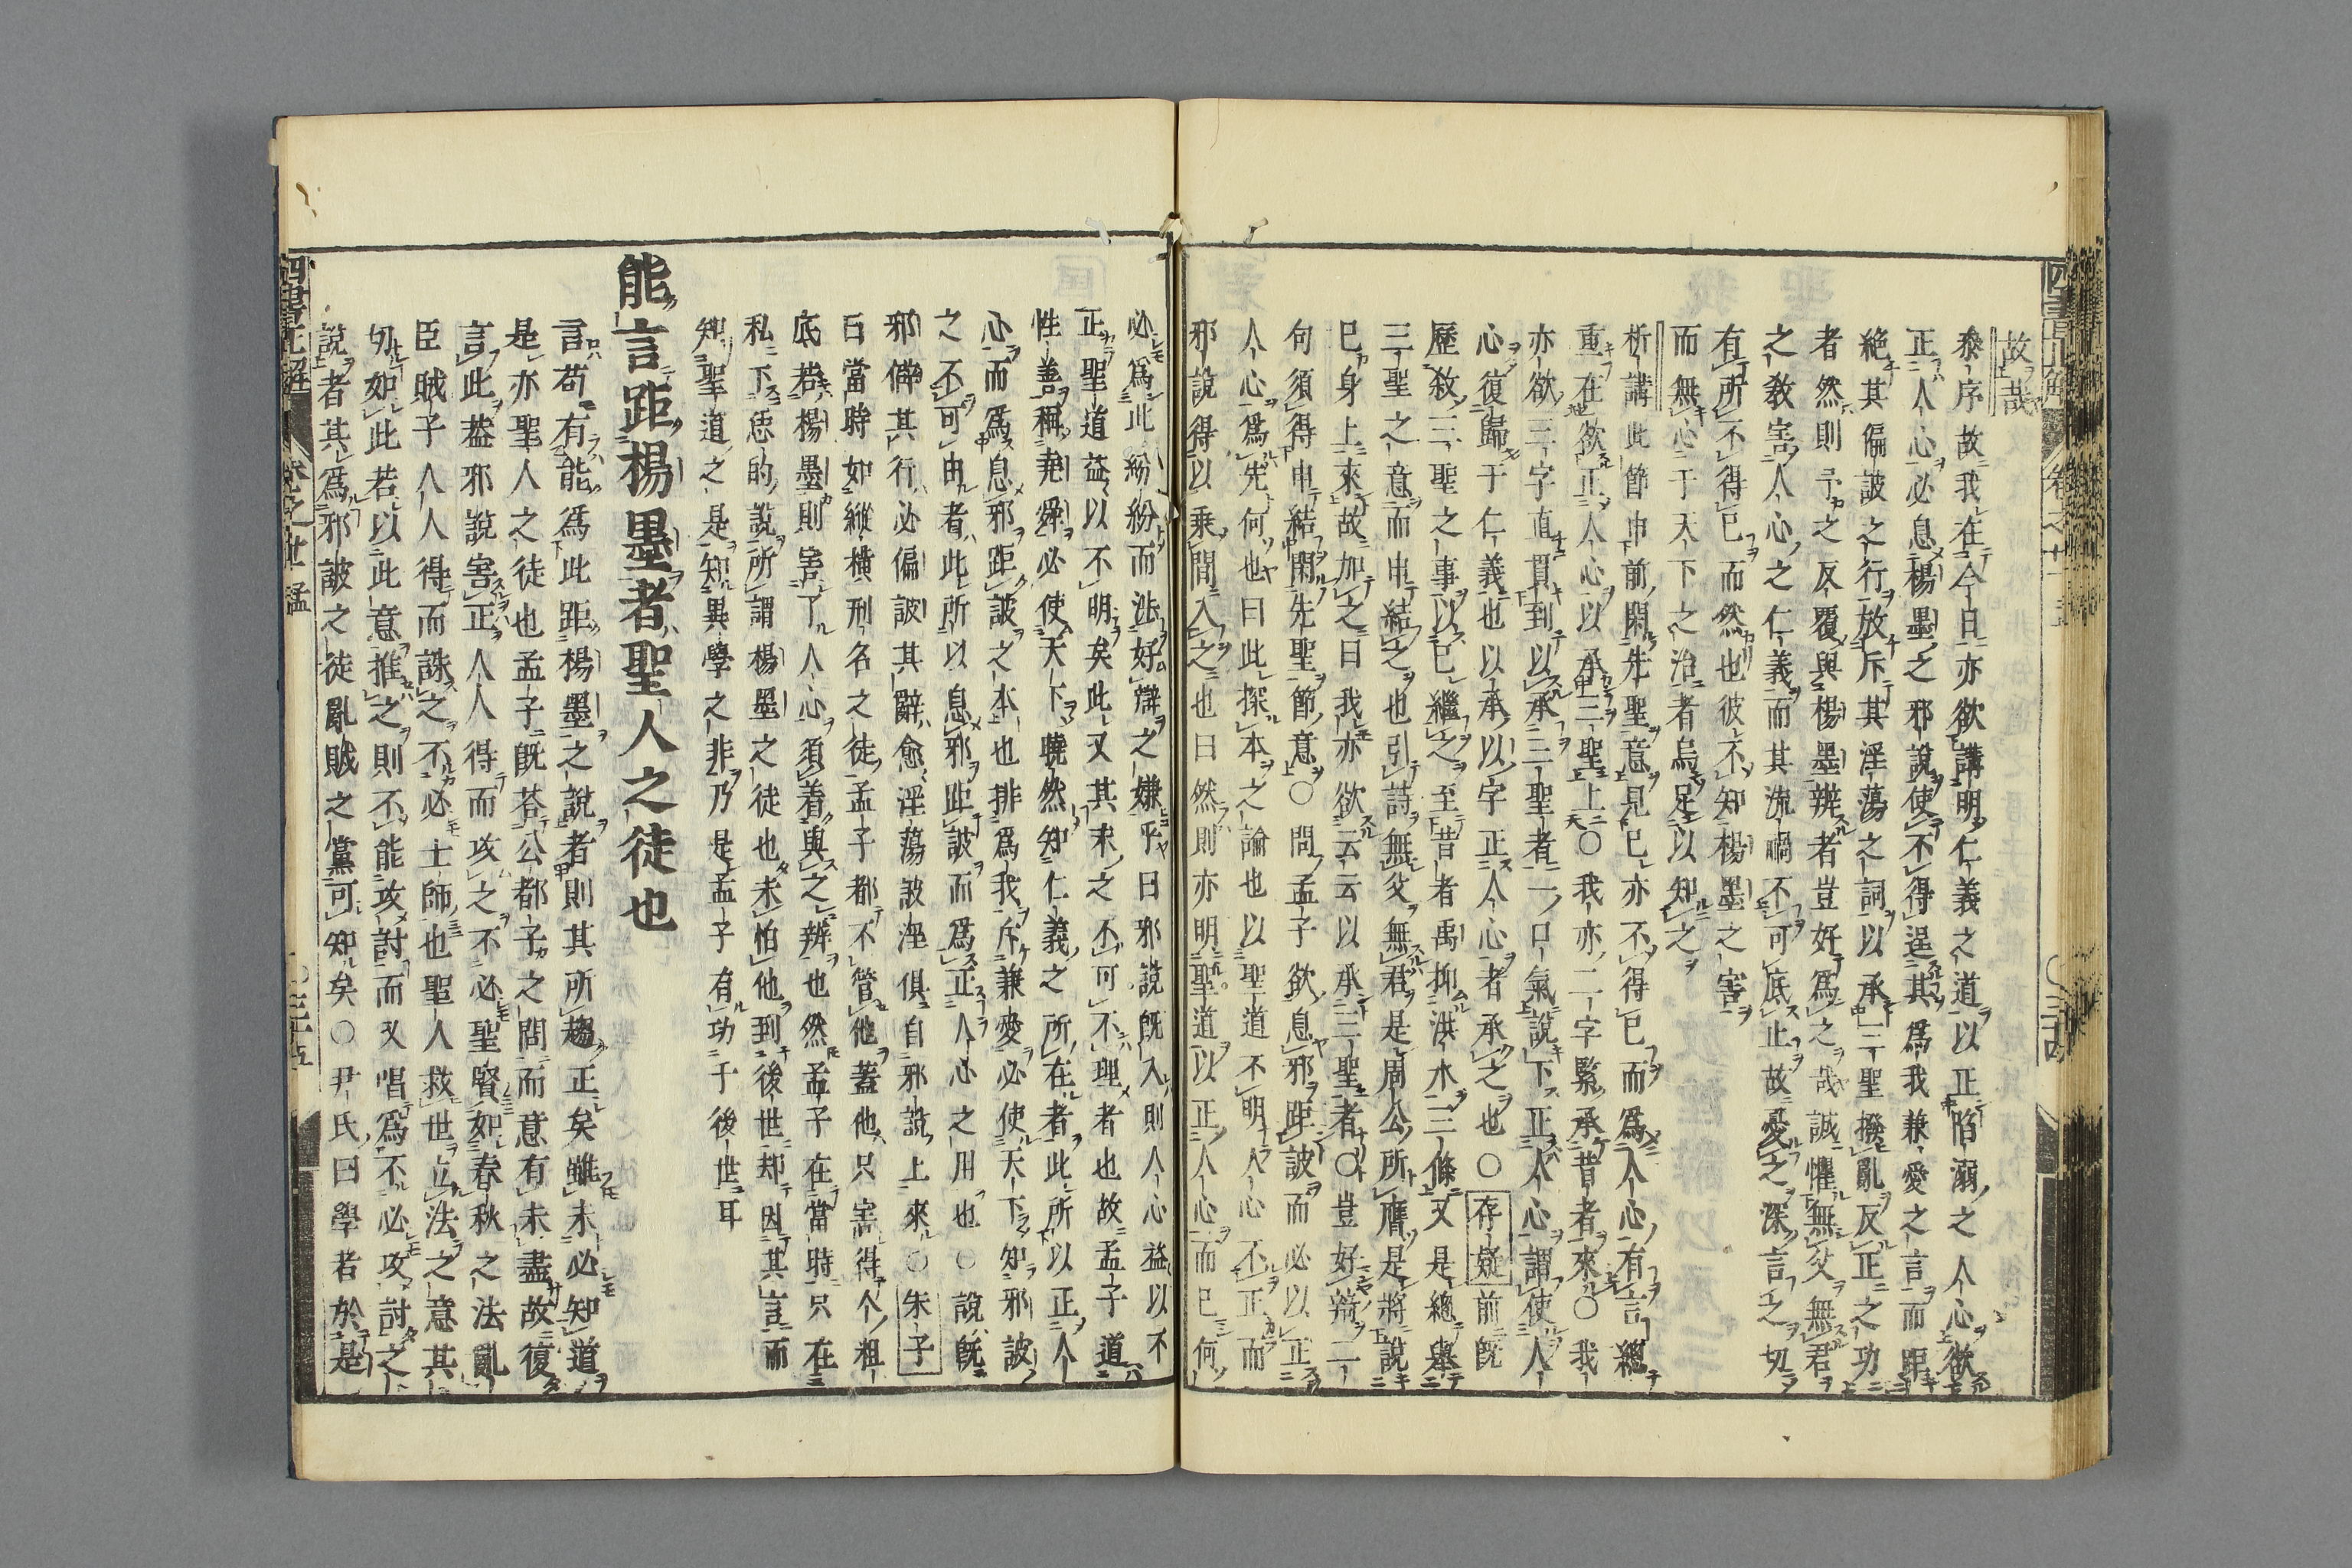 故哉
叅序故我在今日亦欲講明仁義之道以正陷溺之人心欲
正人心必息楊墨之邪說使不得逞其爲我兼愛之言而距
絶其偏詖之行放斥其淫蕩之詞以承三聖撥亂反正之功
者然則予之反覆與楊墨辨者豈好爲之哉誠懼無父無君
之教害人心之仁義而其流禍不可底止故憂之深言之切
有所不得已而然也彼不知楊墨之害
而無心于天下之治者烏足以知之
析講此節申前閑先聖意見已亦不得已而爲人心有言總
重在欲正人心以承三聖上○我亦二字緊承昔者來○我
亦欲三字直貫到以承三聖者一口氣說下正人心謂使人
心復歸于仁義也以承以字正人心者承之也○存疑前旣
歷敘三聖之事以已繼之至昔者禹抑洪水三條又是總舉
三聖之意而申結之也引詩無父無君是周公所膺是將說
巳身上來故加之曰我亦欲云云以承三聖者○豈好辯二
句須得申結閑先聖節意○問孟子欲息邪距詖而必以正
人心爲先何也曰此探本之論也以聖道不明人心不正而
邪說得以乘間入之也曰然則亦明聖道以正人心而已何
必爲此紛紛而涉好辯之嫌乎曰邪說旣入則人心益以不
正聖道益以不明矣此又其末之不可不理者也故孟子道
性善稱堯舜必使天下曉然知仁義之所在者此所以正人
心而爲息邪距詖之本也排爲我斥兼愛必使天下知邪詖
之不可由者此所以息邪距詖而爲正人心之用也○說旣
邪僻其行必偏詖其辭愈淫蕩詖淫俱自邪說上來○朱子
曰當時如縱橫刑名之徒孟子都不管他蓋他只害得个粗
底若楊墨則害了人心須着與之辨也然孟子在當時只在
私下恁的說所謂楊墨之徒也未怕他到後世却因其言而
知聖道之是知異學之非乃是孟子有功于後世耳
能言距楊墨者聖人之徒也
言苟有能爲此距楊墨之說者則其所趨正矣雖未必知道
是亦聖人之徒也孟子旣荅公都子之問而意有未盡故復
言此蓋邪說害正人人得而攻之不必聖賢如春秋之法亂
臣賊子人人得而誅之不必士師也聖人救世立法之意其
切如此若以此意推之則不能攻討而又唱爲不必攻討之
說者其爲邪詖之徒亂賊之黨可知矣○尹氏曰學者於是
四書正解
卷之廿
孟
三十五